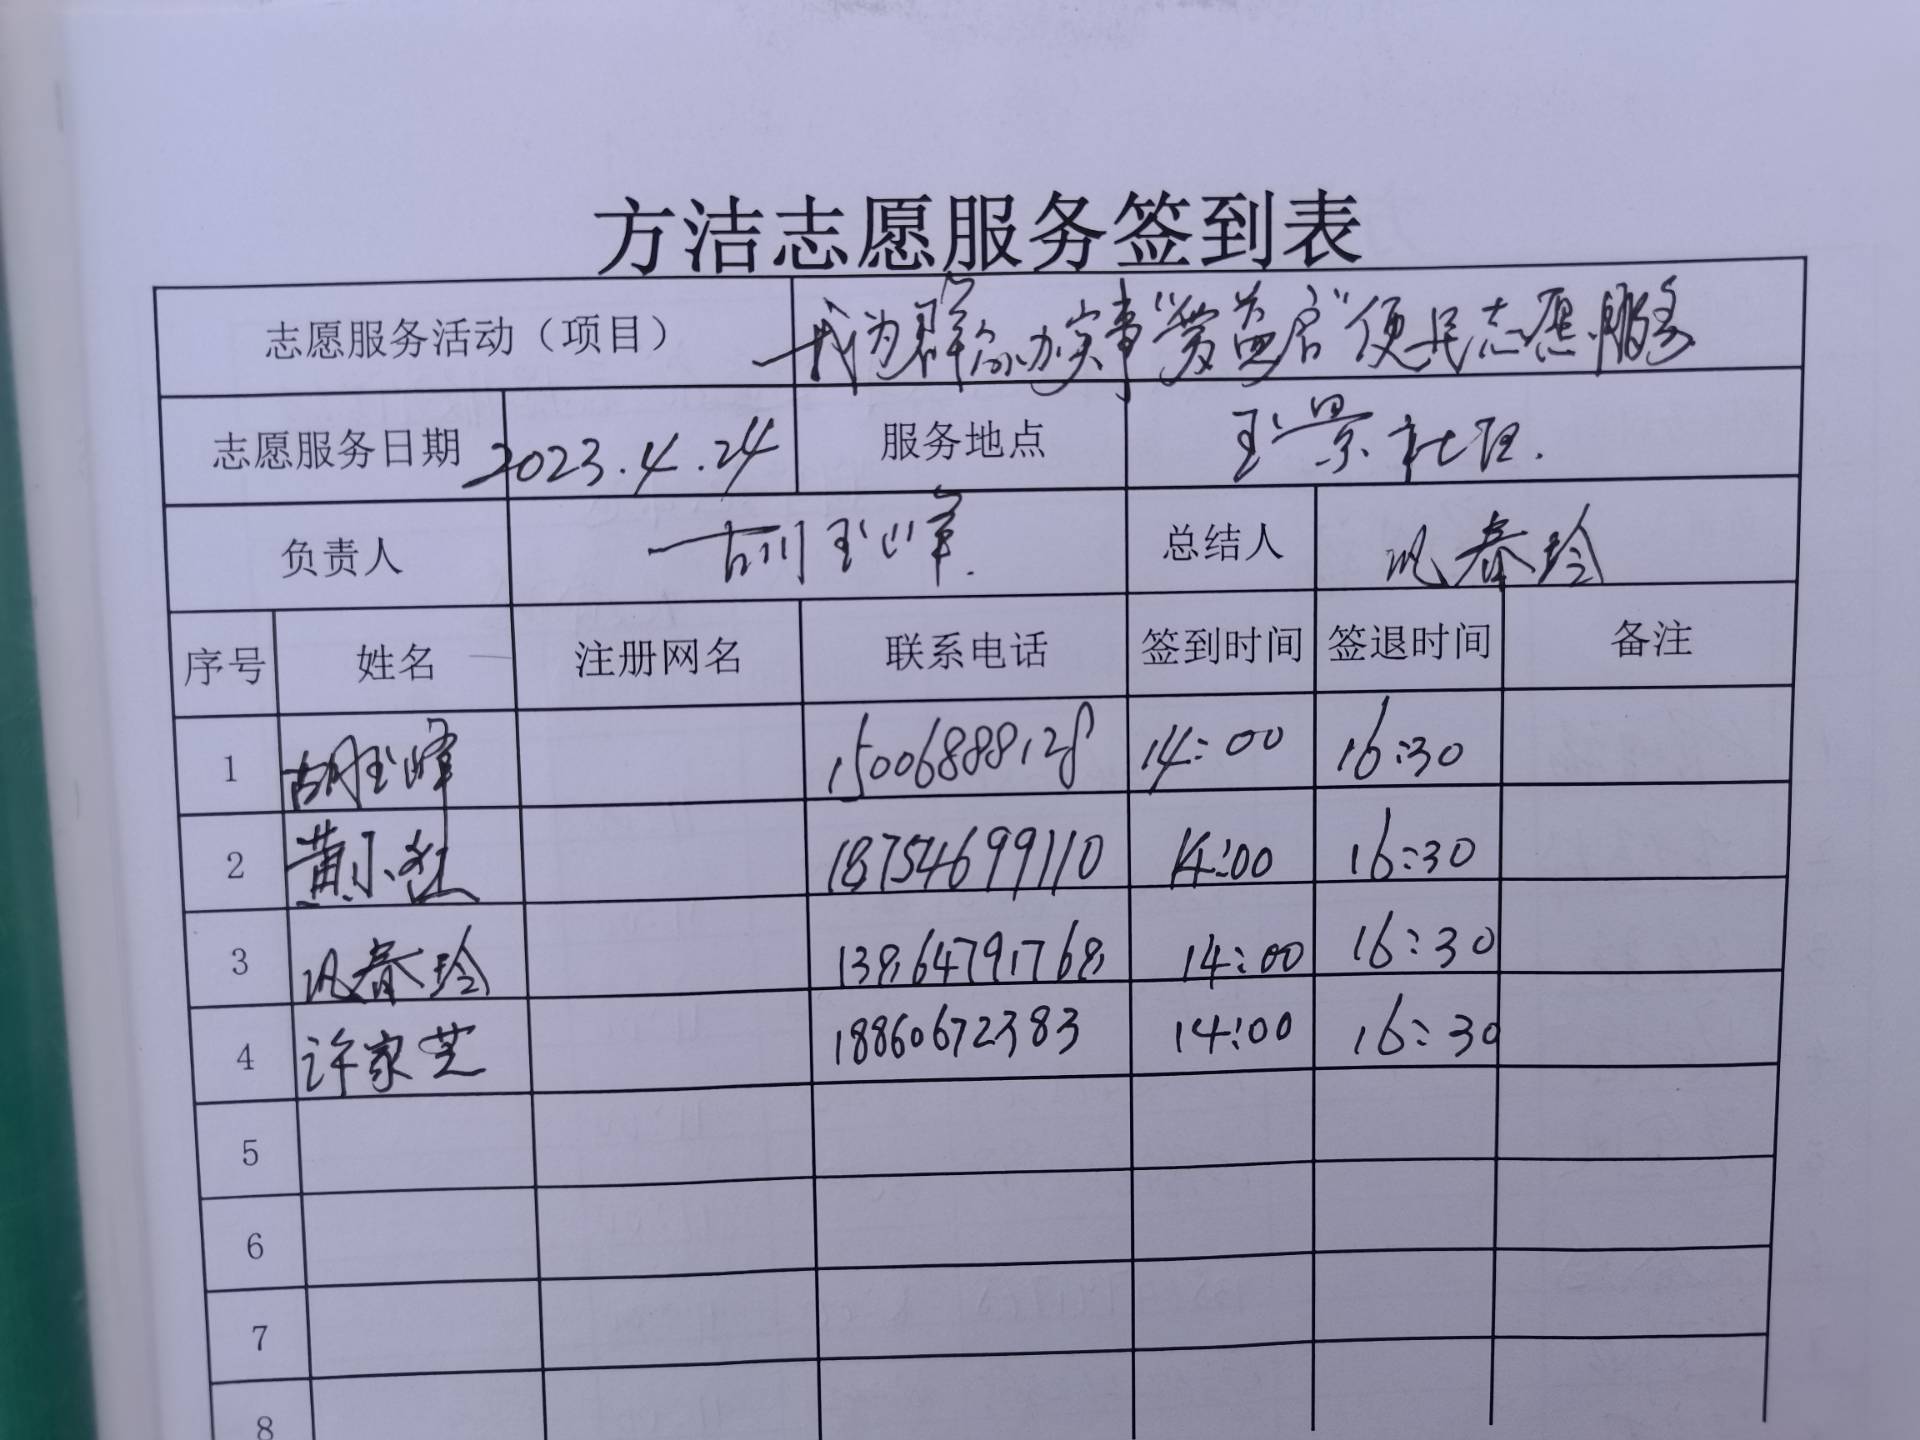 方洁志愿服务签到表
志愿服务活动（项目） 我为群众办实事“爱益启”便民志愿服务
志愿服务日期 2023.4.24 服务地点 玉景社区.
负责人 胡玉峰. 总结人 巩春玲
序号 姓名 注册网名 联系电话 签到时间 签退时间 备注
1 胡玉峰 15006888128 14:00 16:30
2 黄小 18754699110 14:00 16:30
3 巩春玲 13864791768 14:00 16:30
4 许家芝 18860672383 14:00 16:30
5
6
7
8